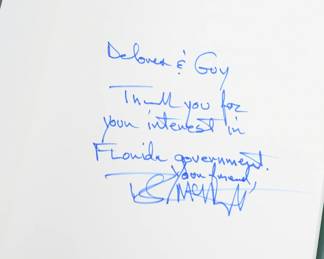 Delores & Guy
Thank you for
your interest in
Florida government.
Your friend,